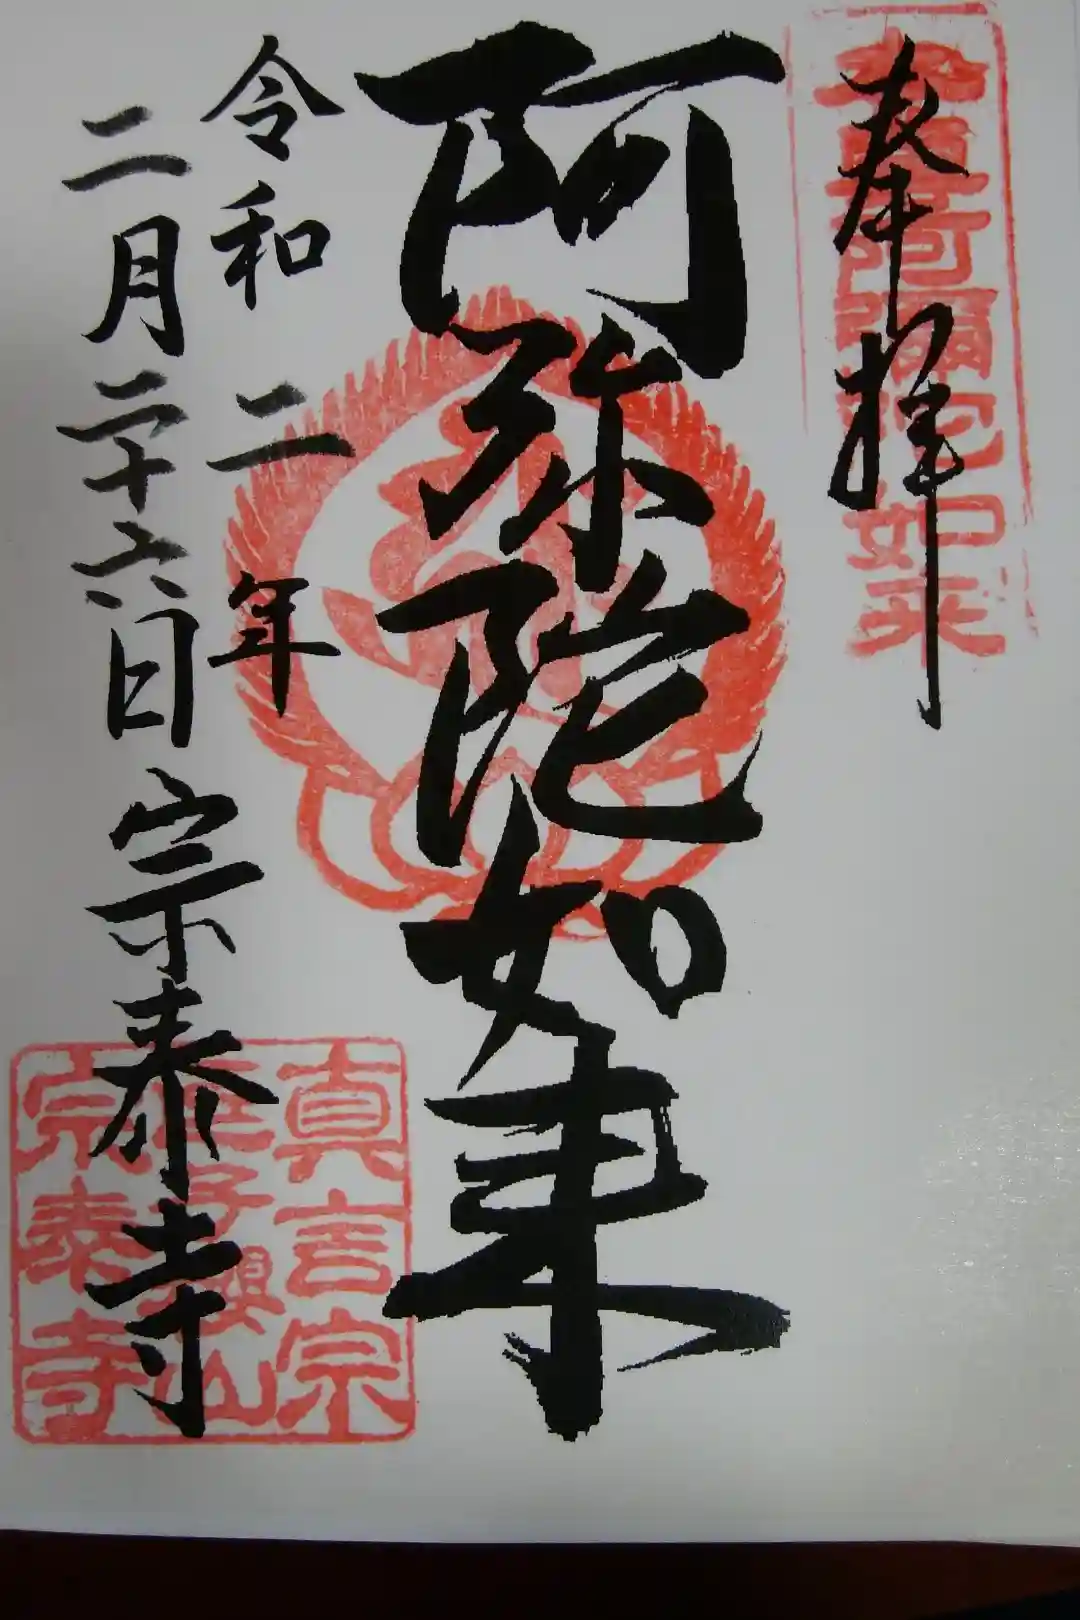 奉拝
本尊阿彌陀如来
阿弥陀如来
令和二年
二月二十六日
宗泰寺
真言宗
宗泰寺